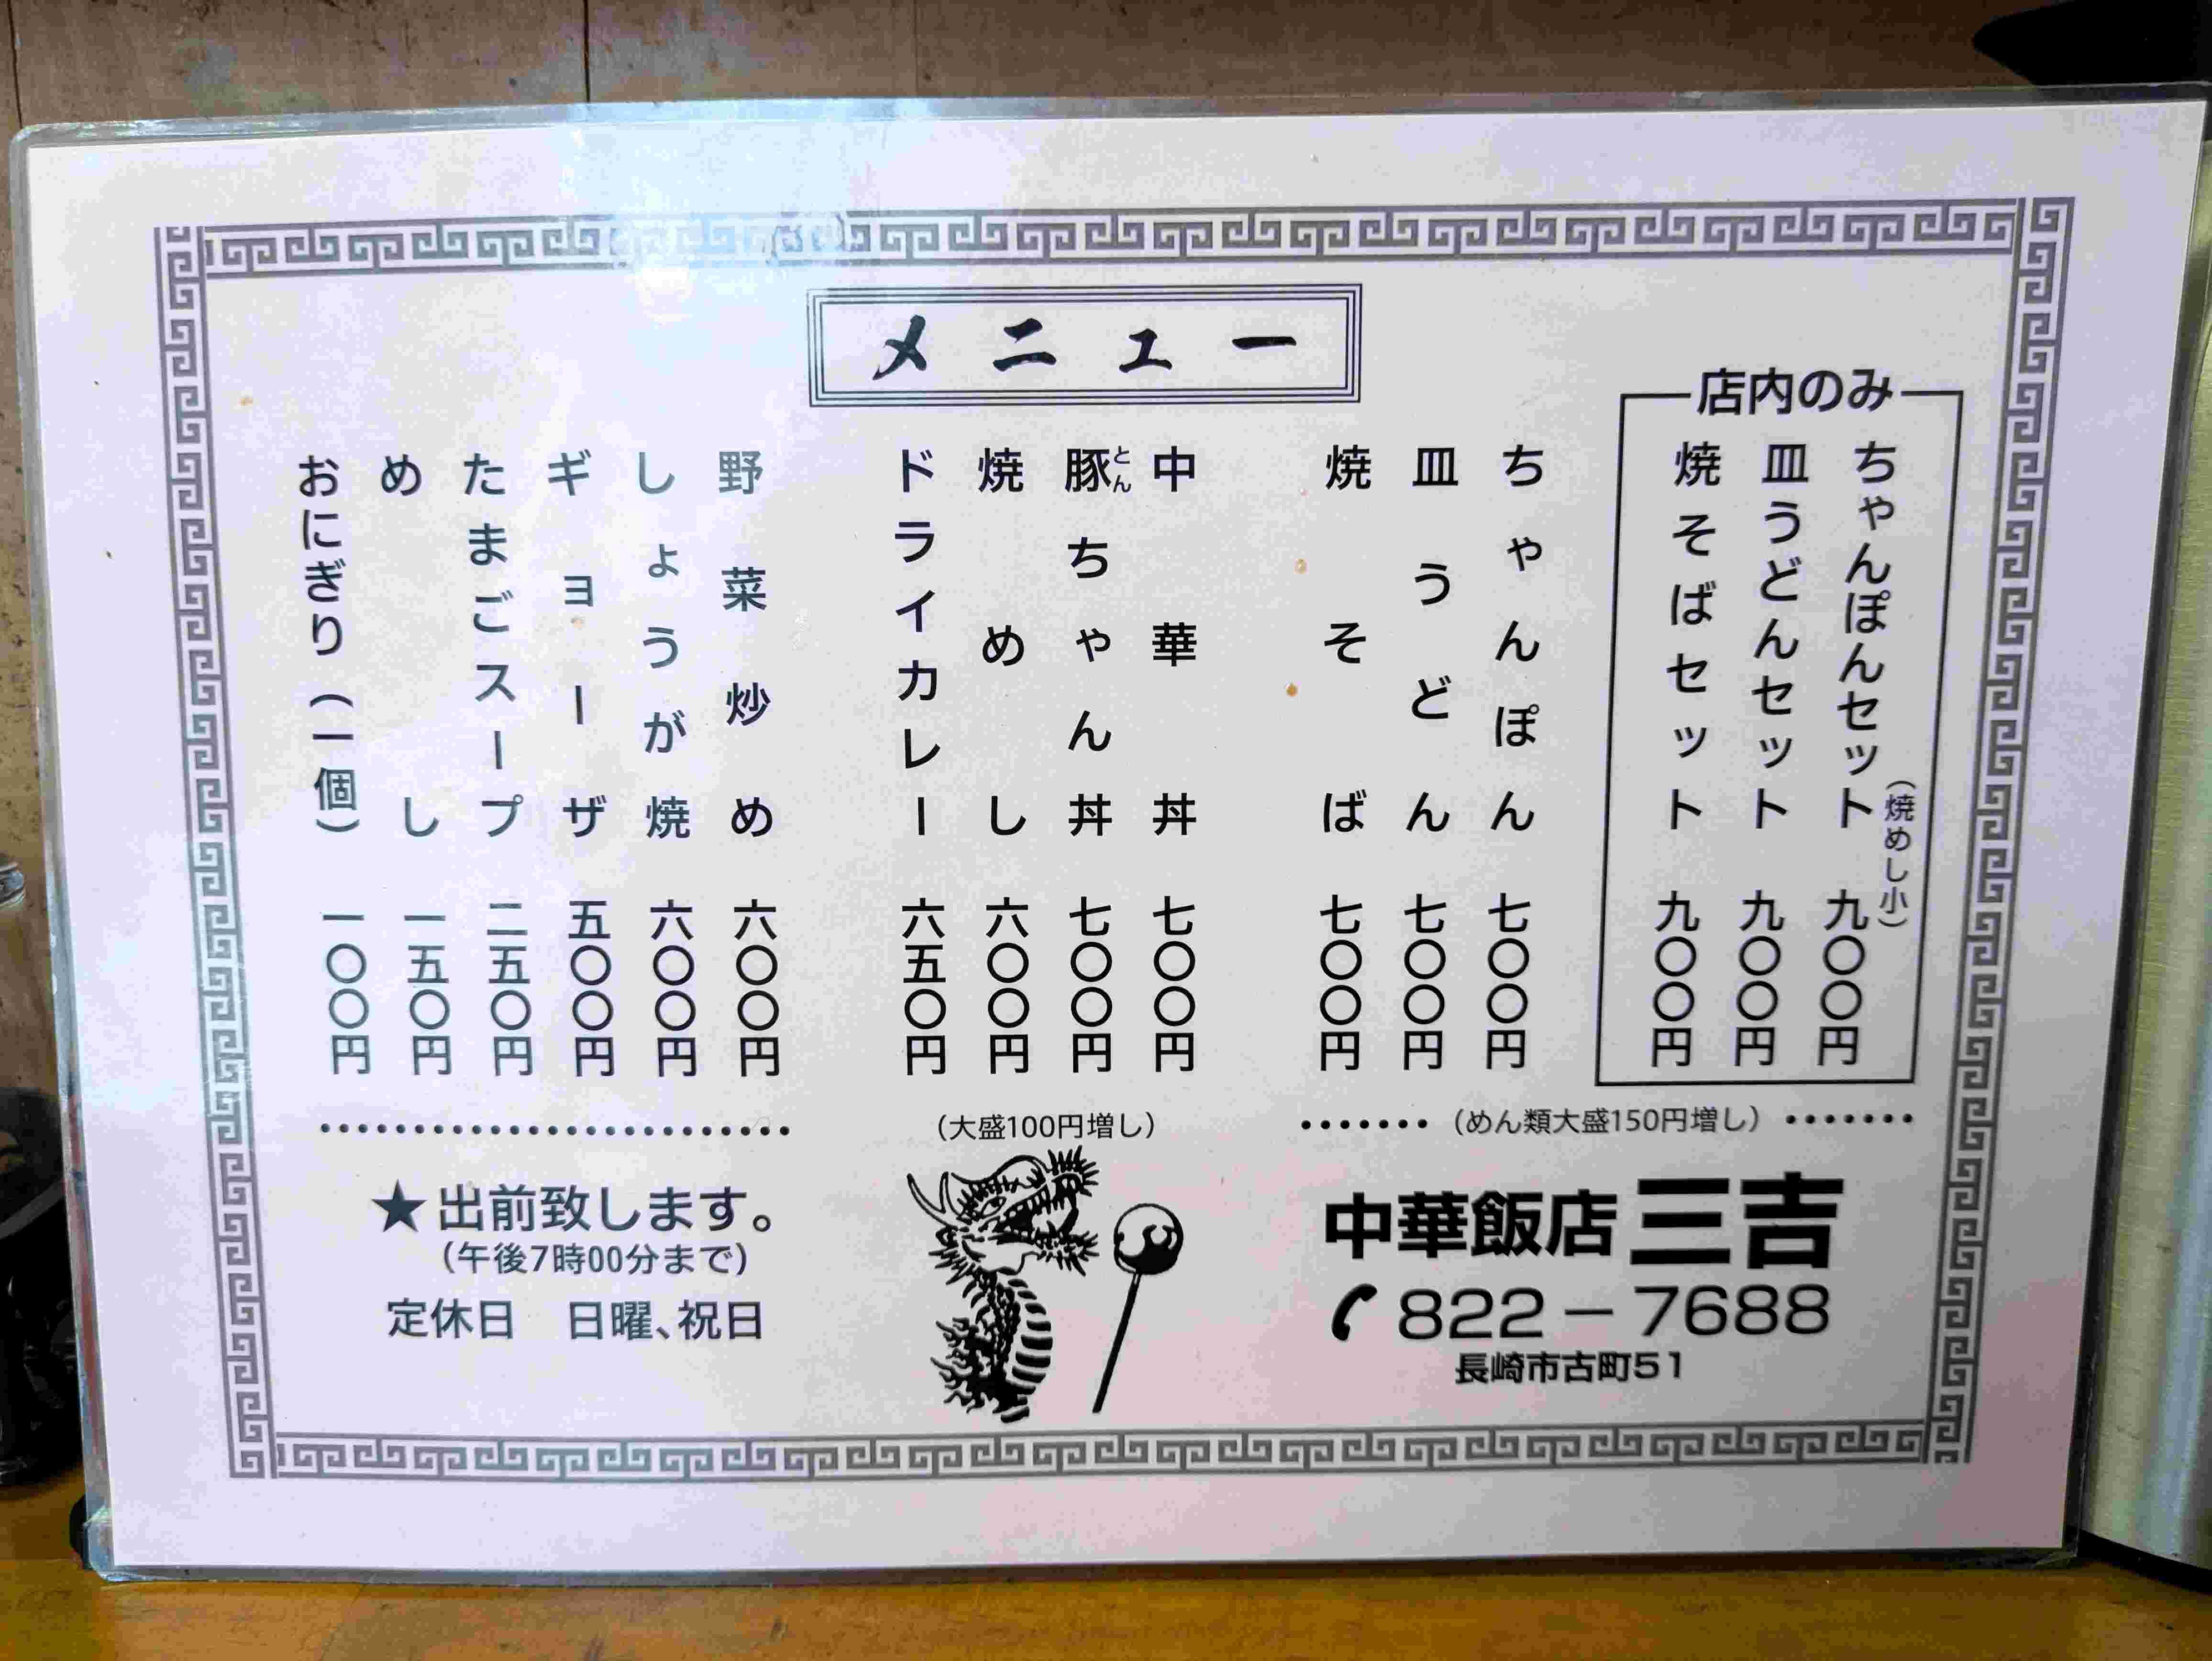 メニュー
店内のみ
ちゃんぽんセット(焼めし小) 九〇〇円
皿うどんセット 九〇〇円
焼そばセット 九〇〇円
ちゃんぽん 七〇〇円
皿うどん 七〇〇円
焼そば 七〇〇円
(めん類大盛150円増し)
中華丼 七〇〇円
豚ちゃん丼 七〇〇円
とん
焼めし 六〇〇円
ドライカレー 六五〇円
(大盛100円増し)
野菜炒め 六〇〇円
しょうが焼 六〇〇円
ギョーザ 五〇〇円
たまごスープ 二五〇円
めし 一五〇円
おにぎり(一個) 一〇〇円
★出前致します。
(午後7時00分まで)
定休日 日曜、祝日
中華飯店 三吉
822-7688
長崎市古町51